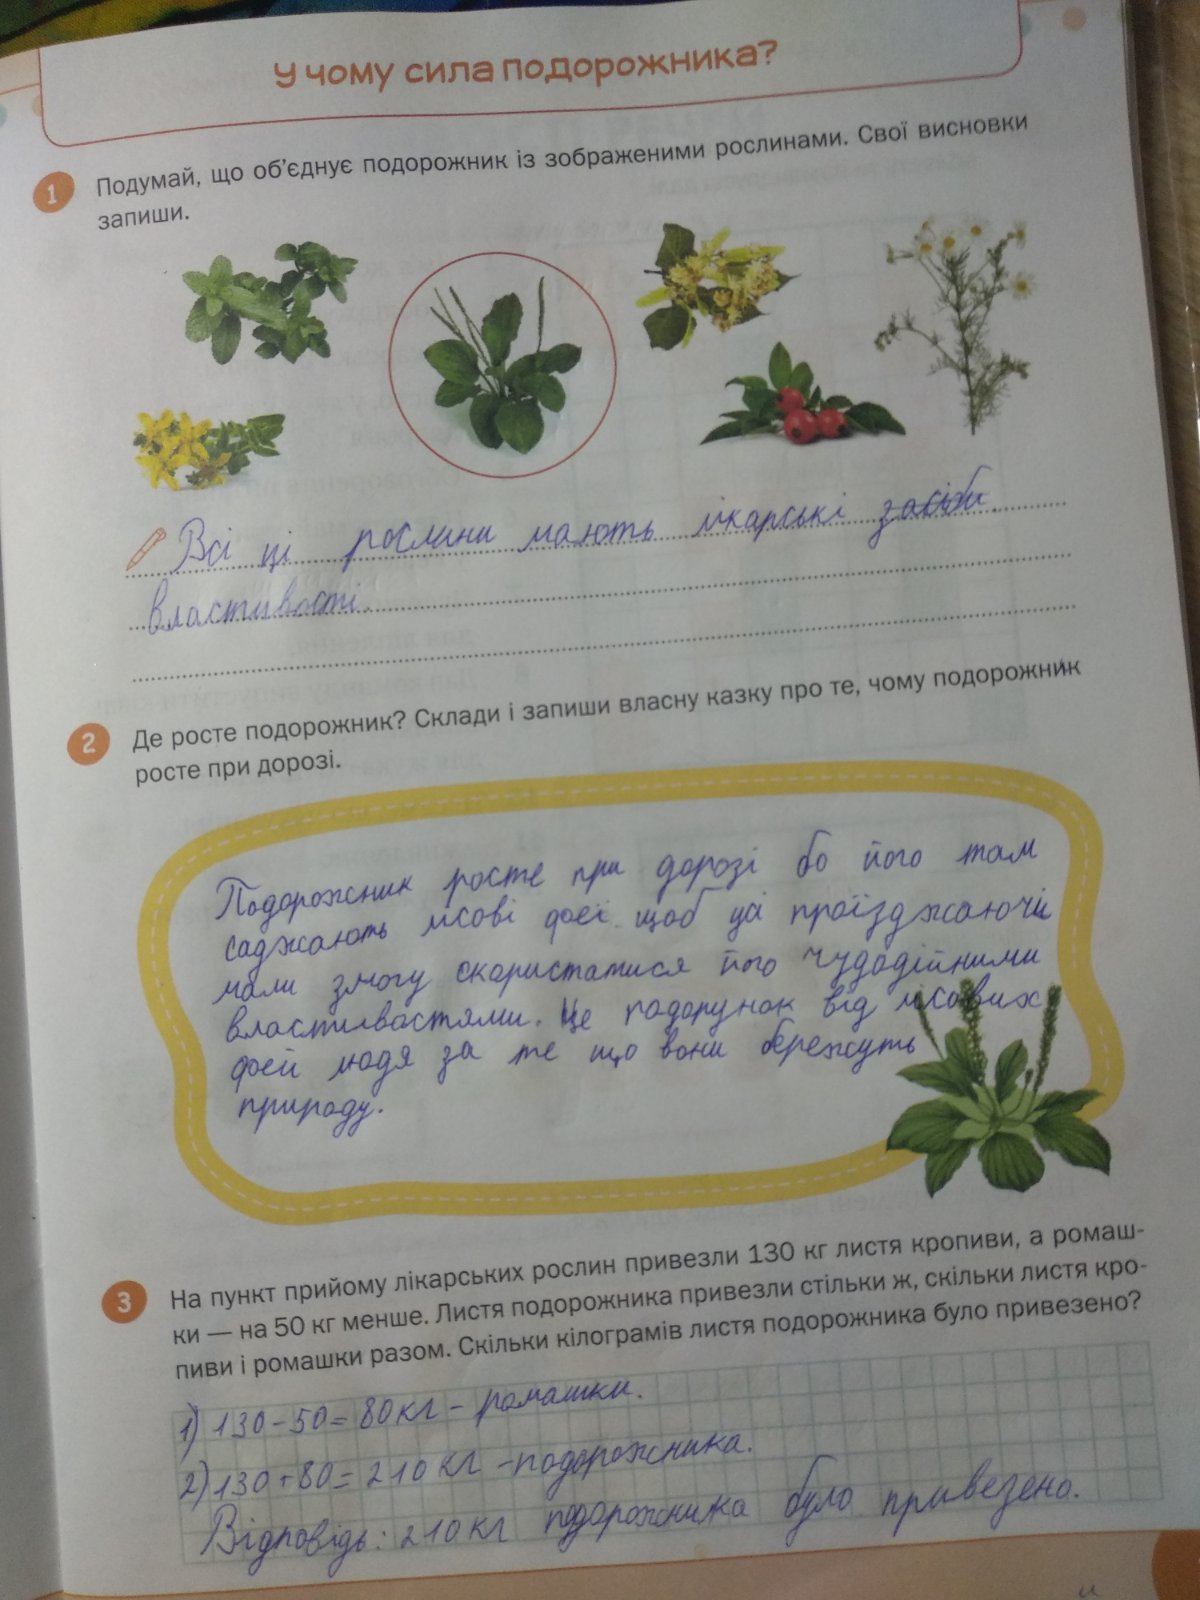 У чому сила подорожника?
1 Подумай, що об'єднує подорожник із зображеними рослинами. Свої висновки
запиши.
Всі ці рослини мають лікарські засоби.
властивості.
2 Де росте подорожник? Склади і запиши власну казку про те, чому подорожник
росте при дорозі.
Подорожник росте при дорозі бо його там
саджають лісові феї щоб усі проїзджаючі
мали змогу скористатися його чудодійними
властивостями. Це подарунок від лісових
фей людя за те що вони бережуть
природу.
3 На пункт прийому лікарських рослин привезли 130 кг листя кропиви, а ромаш-
ки — на 50 кг менше. Листя подорожника привезли стільки ж, скільки листя кро-
пиви і ромашки разом. Скільки кілограмів листя подорожника було привезено?
1) 130-50=80кг - ромашки.
2) 130+80=210 кг -подорожника.
Відповідь: 210кг подорожника було привезено.